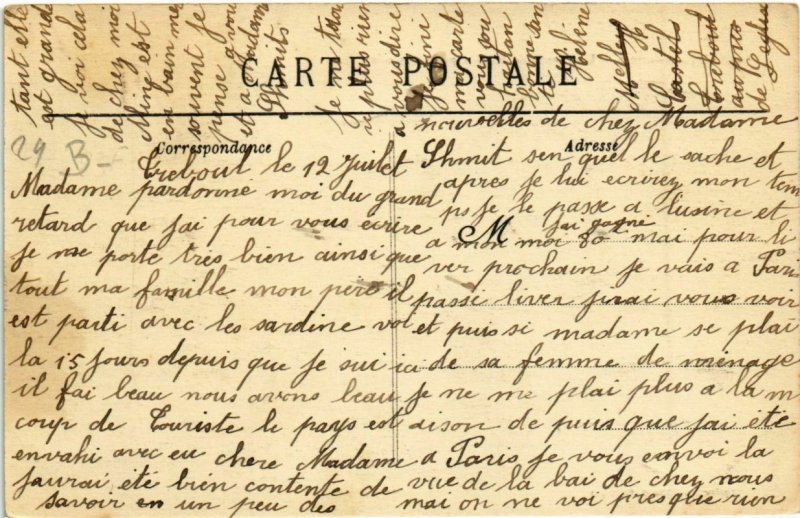 CARTE POSTALE
Correspondance
Adresse
29 B-
Treboul le 12 Juilet
Madame pardonne moi du grand
retard que jai pour vous ecrire
je me porte très bien ainsi que
tout ma famille mon père il
est parti avec les sardine voi
la 15 jours depuis que je sui ici
il fai beau nous avons beau
coup de Touriste le pays est
envahi avec eu chere Madame
jaurai été bien contente de
savoir en un peu des
nouvelles de chez Madame
Shmit sen quel le sache et
apres je lui ecrirez mon tem
ps je le passe a lusine et
M jai gagne
a mon moi 80 mai pour li
ver prochain je vais a Paris
passé liver jirai vous voir
et puis si madame se plai
de sa femme de minage
je ne me plai plus a la m
aison de puis que jai été
a Paris je vous envoi la
vue de la bai de chez nous
mai on ne voi presque rien
tant elle
est grande
je voi cela
de chez moi
Mine est
en bain me
souvent je
pense a vou
et a Madame
Shmits
je ne trou
ve plus rien
a vous dire
je fini
ma carte
Hélène
aupres
de